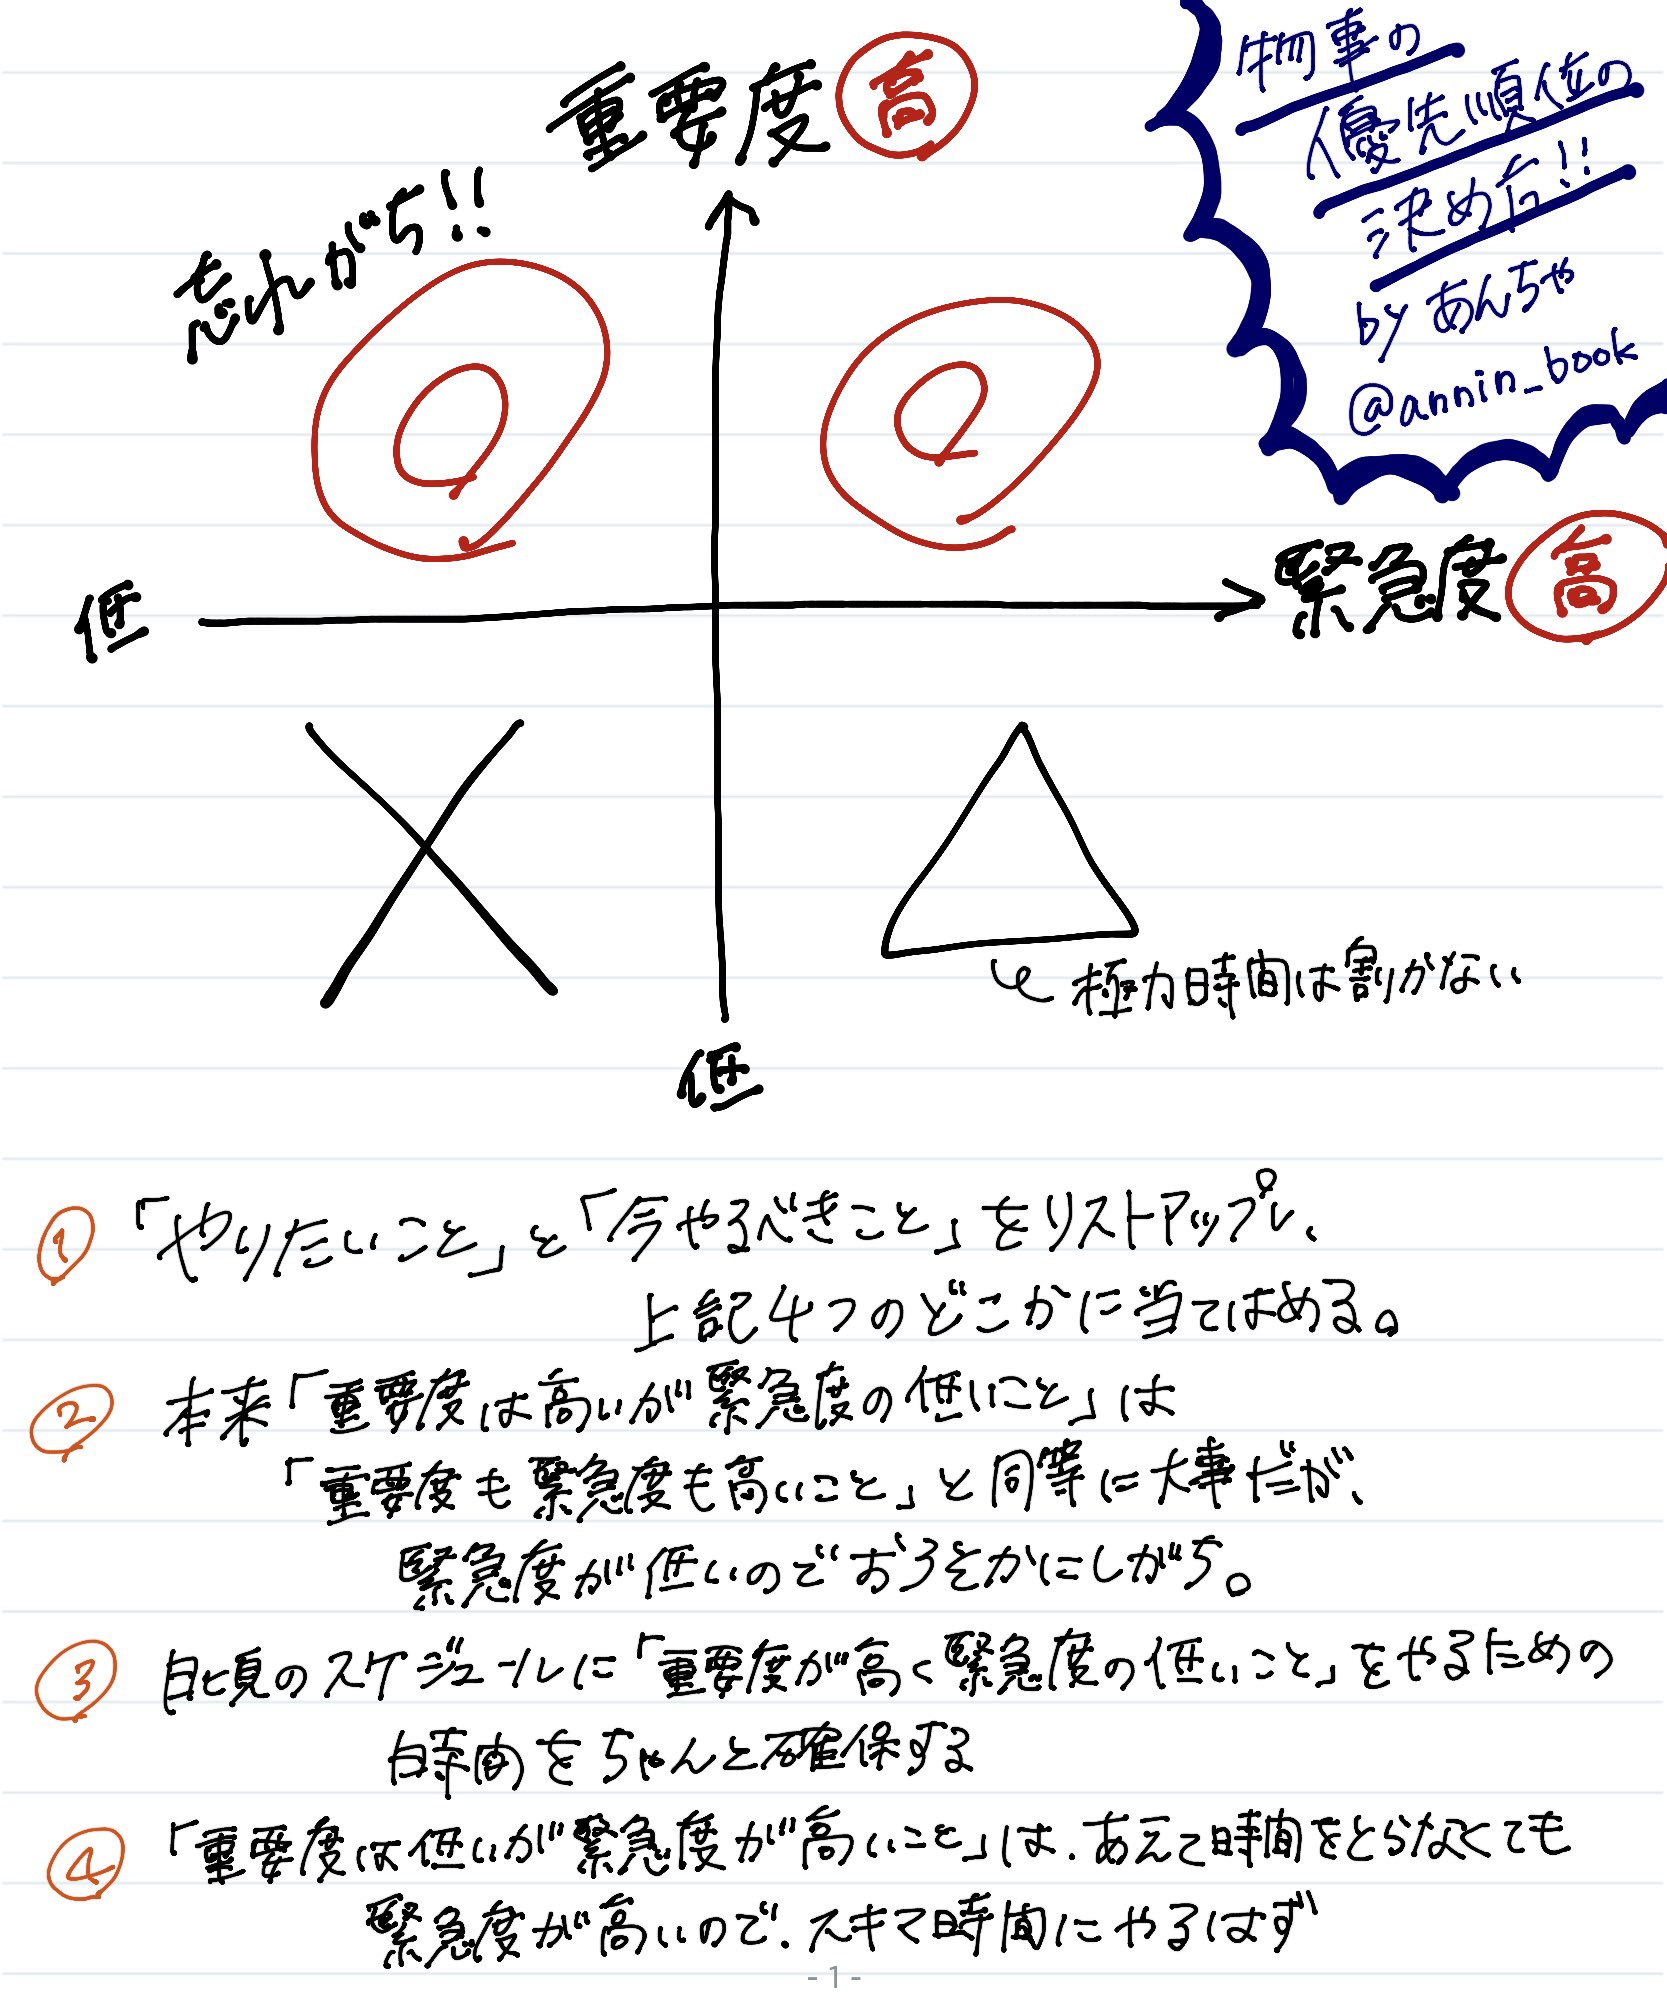 重要度 高
物事の
優先順位の
決め方!!
by あんちゃ
@annin_book
忘れがち!!
低
緊急度 高
極力時間は割かない
低
① 「やりたいこと」と「今やるべきこと」をリストアップし、
上記4つのどこかに当てはめる。
② 本来「重要度は高いが緊急度の低いこと」は
「重要度も緊急度も高いこと」と同等に大事だが、
緊急度が低いのでおろそかにしがち。
③ 日頃のスケジュールに「重要度が高く緊急度の低いこと」をやるための
時間をちゃんと確保する
④ 「重要度は低いが緊急度が高いこと」は、あえて時間をとらなくても
緊急度が高いので、スキマ時間にやるはず
- 1 -